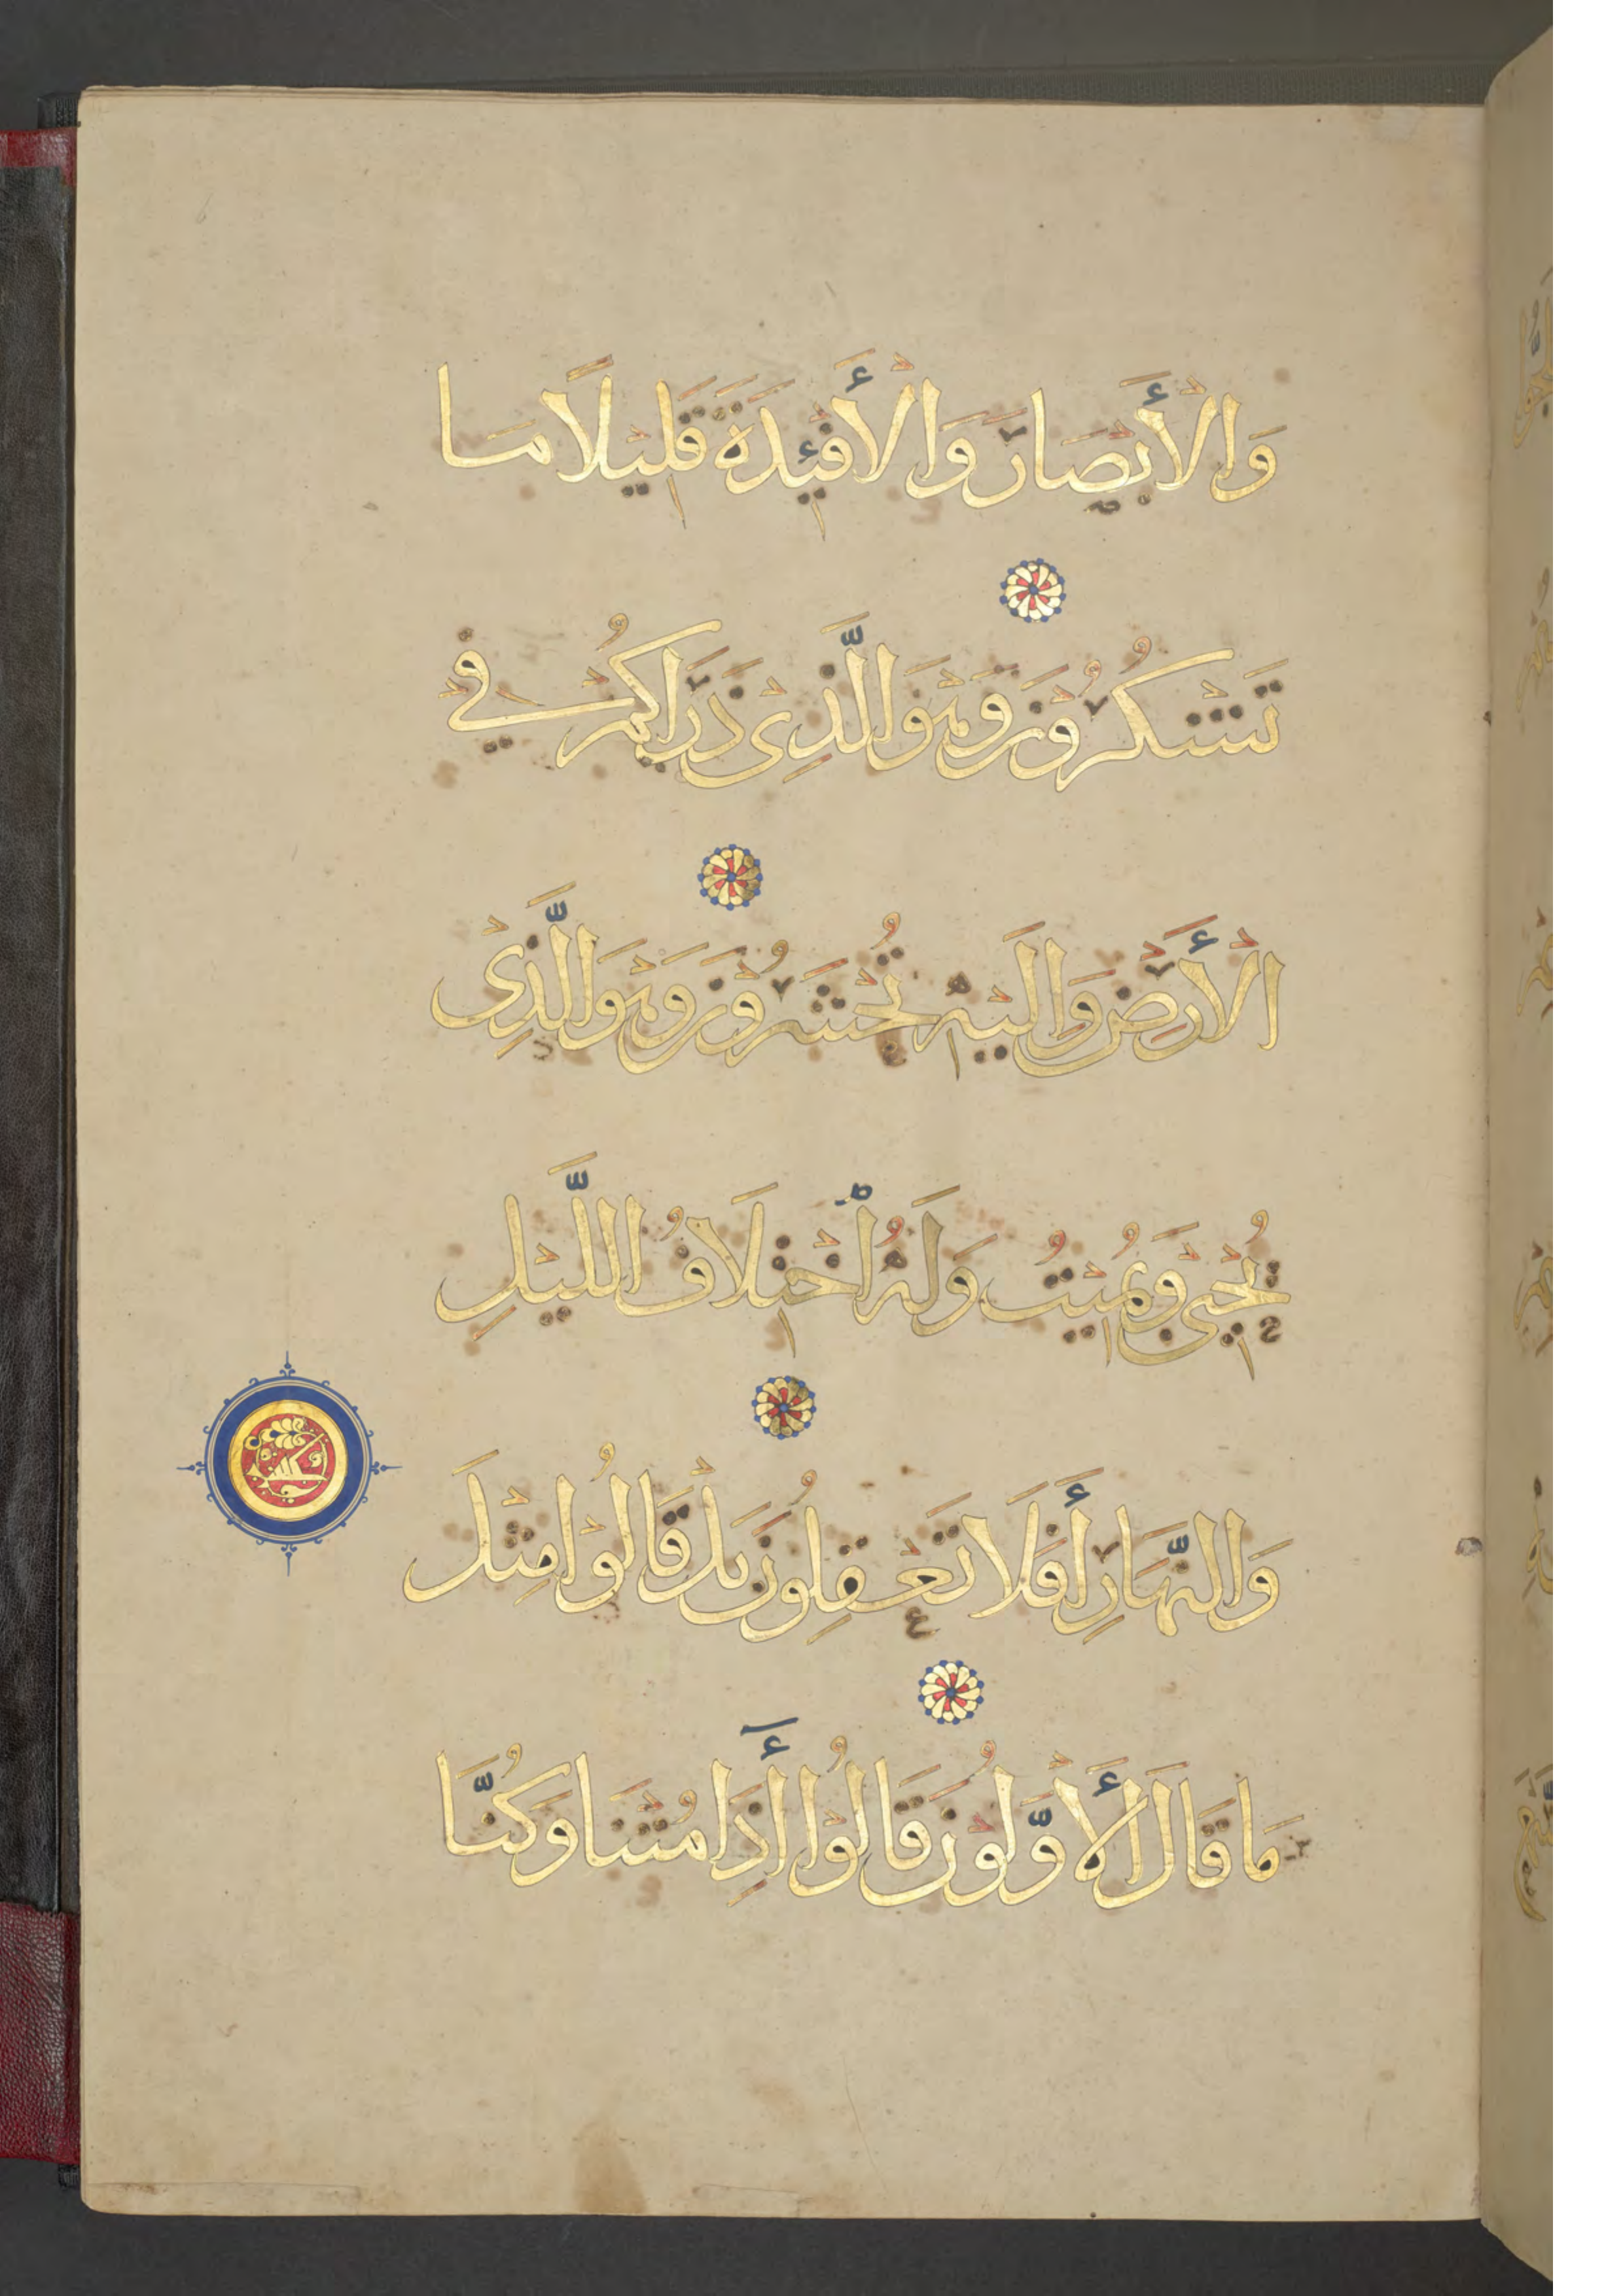 وَالْأَبْصَارَ وَالْأَفْئِدَةَ قَلِيلًا مَا
تَشْكُرُوْنَ وَهْوَ الَّذِيْ ذَرَاَكُمْ فِيْ
الْأَرْضِ وَاِلَيْهِ تُحْشَرُوْنَ وَهْوَ الَّذِيْ
يُحْيِيْ وَيُمِيْتُ وَلَهُ اخْتِلَافُ اللَّيْلِ
وَالنَّهَارِ أَفَلَا تَعْقِلُونَ بَلْ قَالُوْا مِثْلَ
مَا قَالَ الْأَوَّلُوْنَ قَالُوْا أَإِذَا مُتْنَا وَكُنَّا